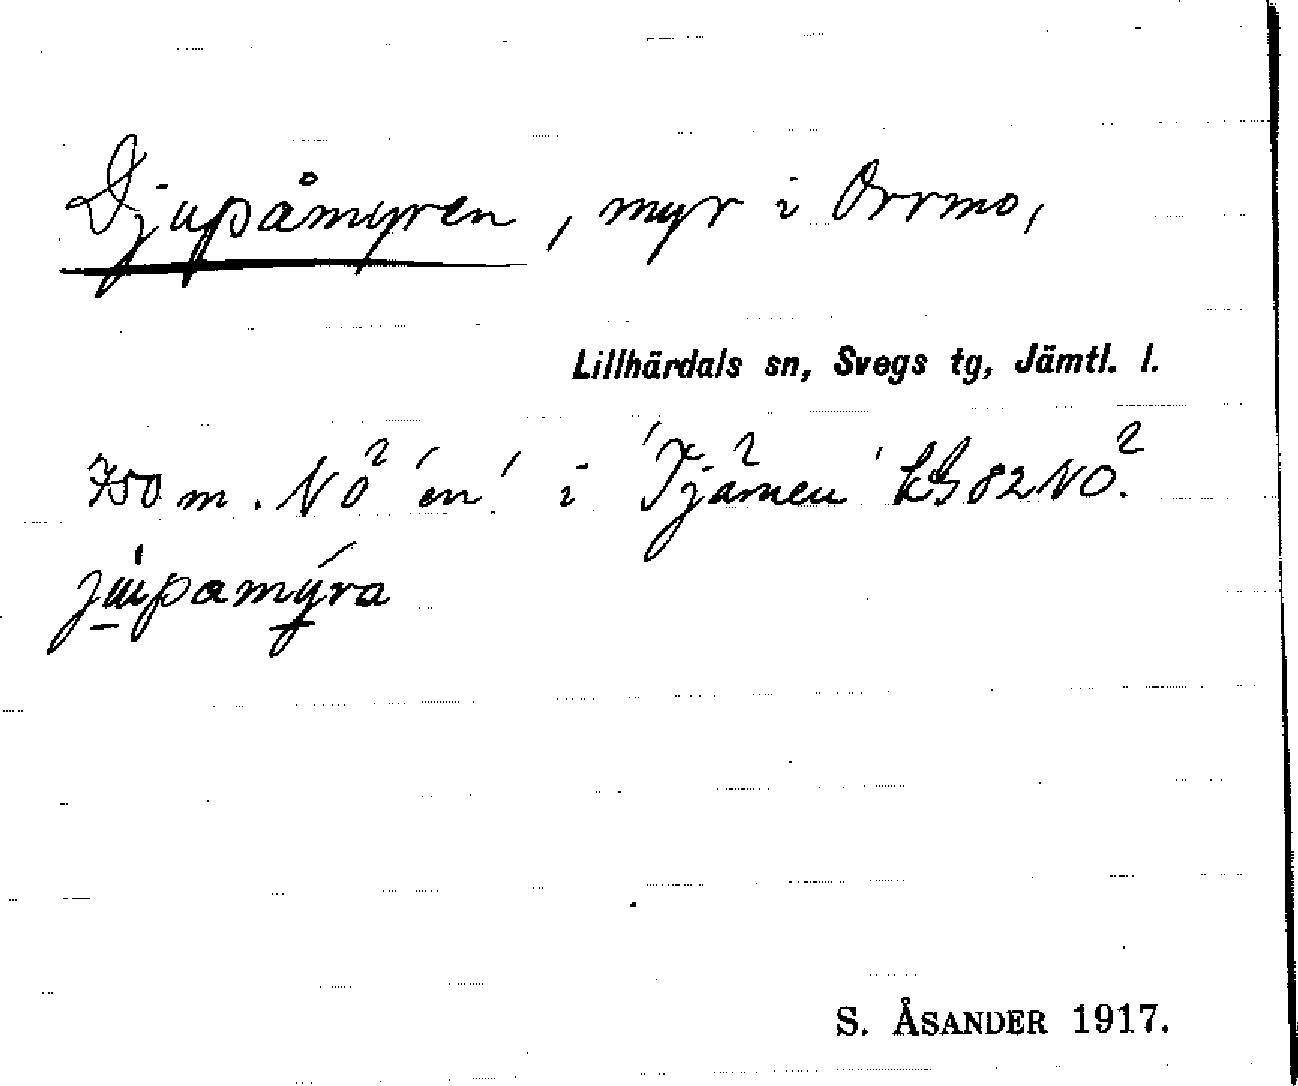 Djupåmyren, myr i Orrmo,
Lillhärdals sn, Svegs tg, Jämtl. l.
750 m. NO² 'en' i 'Tjåmen' LS 82 NO².
jupamýra
S. ÅSANDER 1917.